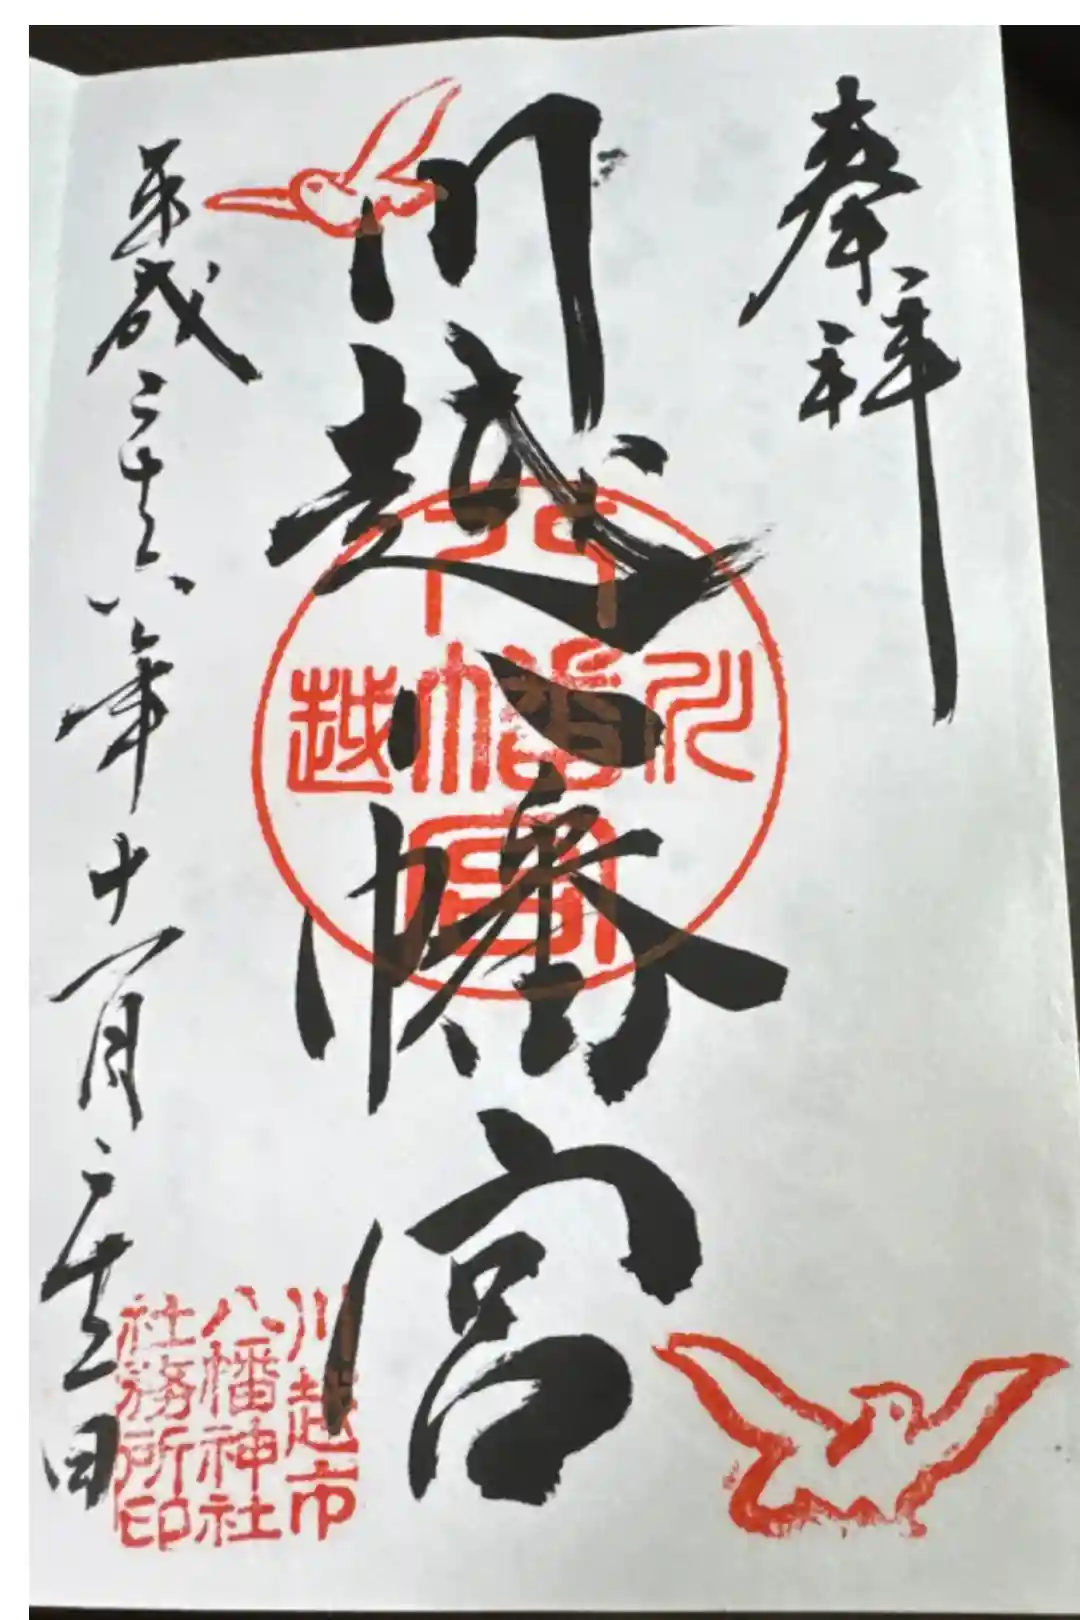 奉拝
川越八幡宮
川越八幡宮
平成二十六年十一月日
川越市
八幡神社
社務所印